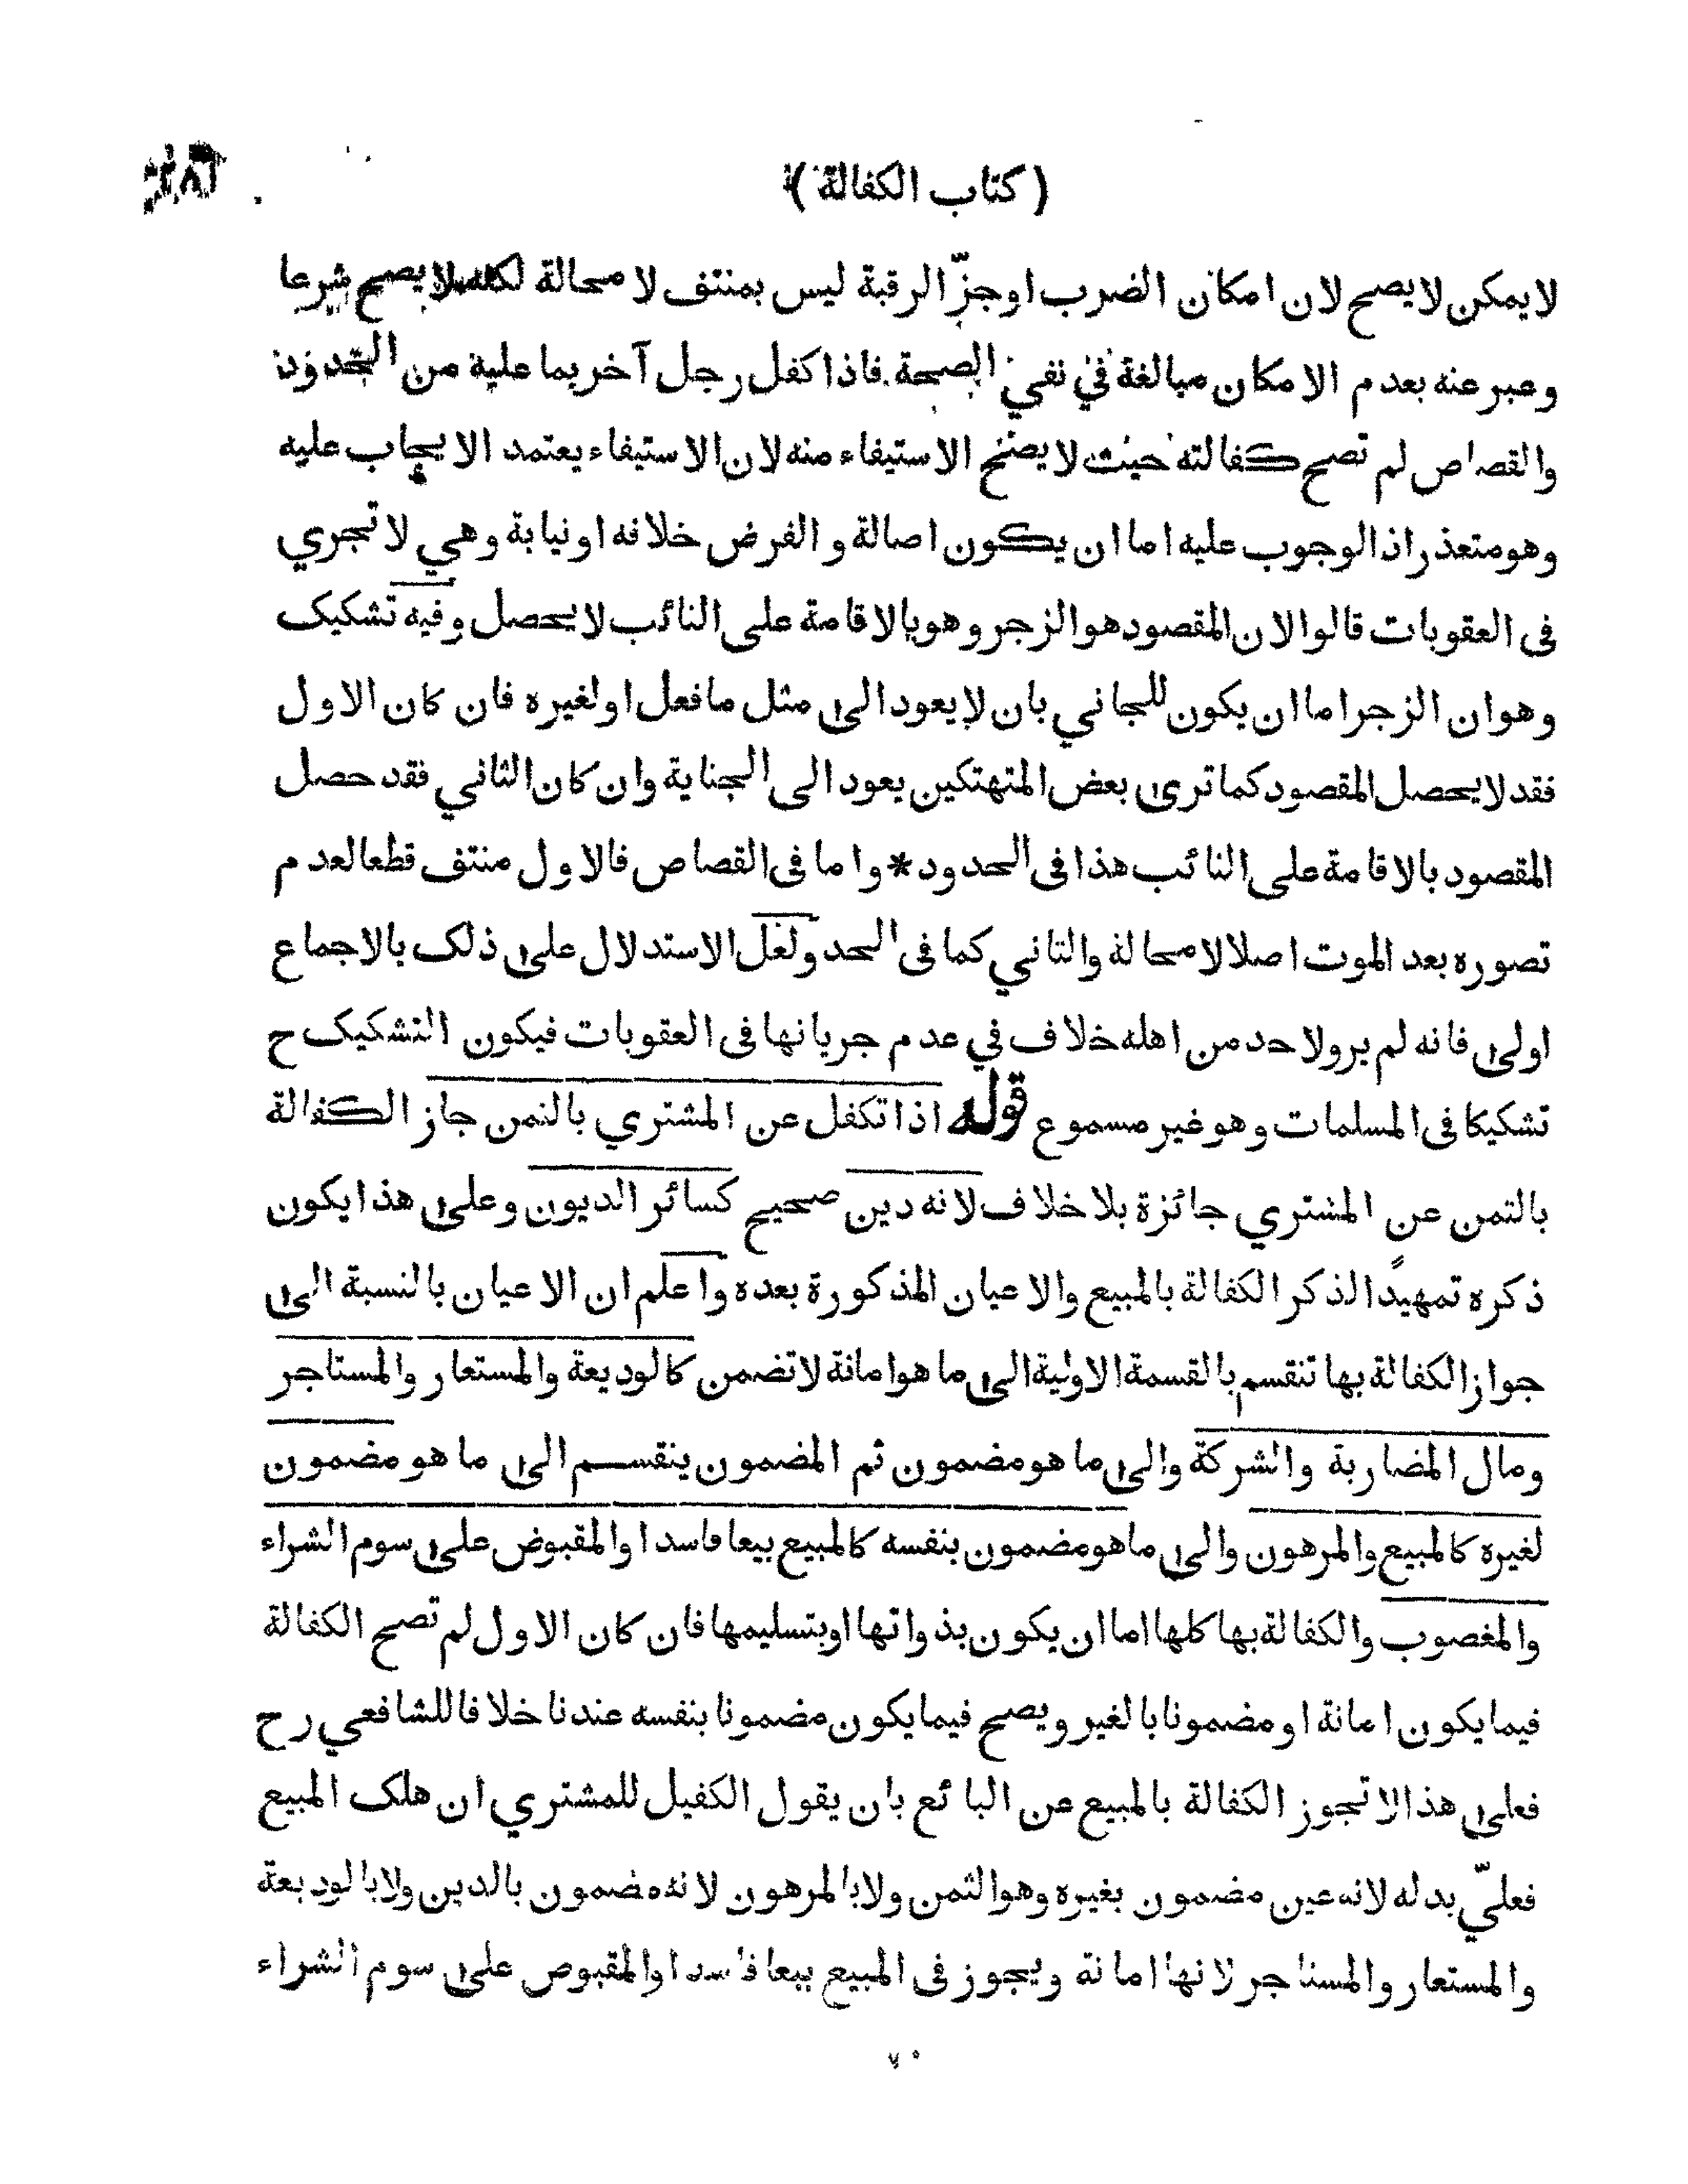 ( كتاب الكفالة )
لا يمكن لا يصح لان امكان الضرب او جزّ الرقبة ليس بمنتف لا محالة لكنه لا يصح شرعا
وعبر عنه بعدم الامكان مبالغة في نفي الصحة فاذا كفل رجل آخر بما عليه من الحدود
والقصاص لم تصح كفالته حيث لا يصح الاستيفاء منه لان الاستيفاء يعتمد الايجاب عليه
وهو متعذر اذ الوجوب عليه اما ان يكون اصالة و الفرض خلافه او نيابة وهي لا تجري
فى العقوبات قالوا لان المقصود هو الزجر وهو بالاقامة على النائب لا يحصل وفيه تشكيك
وهو ان الزجر اما ان يكون للجاني بان لا يعود الى مثل ما فعل او لغيره فان كان الاول
فقد لا يحصل المقصود كما ترى بعض المتهتكين يعود الى الجناية وان كان الثاني فقد حصل
المقصود بالاقامة على النائب هذا فى الحدود * واما فى القصاص فالاول منتف قطعا لعدم
تصوره بعد الموت اصلا لا محالة والثاني كما فى الحد ولعل الاستدلال على ذلك بالاجماع
اولى فانه لم يرو لاحد من اهله خلاف في عدم جريانها فى العقوبات فيكون التشكيك ح
تشكيكا فى المسلمات وهو غير مسموع قوله اذا تكفل عن المشتري بالثمن جاز الكفالة
بالثمن عن المشتري جائزة بلا خلاف لانه دين صحيح كسائر الديون وعلى هذا يكون
ذكره تمهيدًا لذكر الكفالة بالمبيع والاعيان المذكورة بعده واعلم ان الاعيان بالنسبة الى
جواز الكفالة بها تنقسم بالقسمة الاولية الى ما هو امانة لا تضمن كالوديعة والمستعار والمستاجر
ومال المضاربة والشركة والى ما هو مضمون ثم المضمون ينقسم الى ما هو مضمون
لغيره كالمبيع والمرهون والى ما هو مضمون بنفسه كالمبيع بيعا فاسدا والمقبوض على سوم الشراء
والمغصوب والكفالة بها كلها اما ان يكون بذواتها او بتسليمها فان كان الاول لم تصح الكفالة
فيما يكون امانة او مضمونا بالغير ويصح فيما يكون مضمونا بنفسه عندنا خلافا للشافعي رح
فعلى هذا لا تجوز الكفالة بالمبيع عن البائع بان يقول الكفيل للمشتري ان هلك المبيع
فعليّ بدله لانه عين مضمون بغيره وهو الثمن ولا بالمرهون لانه مضمون بالدين ولا بالوديعة
والمستعار والمستاجر لانها امانة ويجوز فى المبيع بيعا فاسدا والمقبوض على سوم الشراء